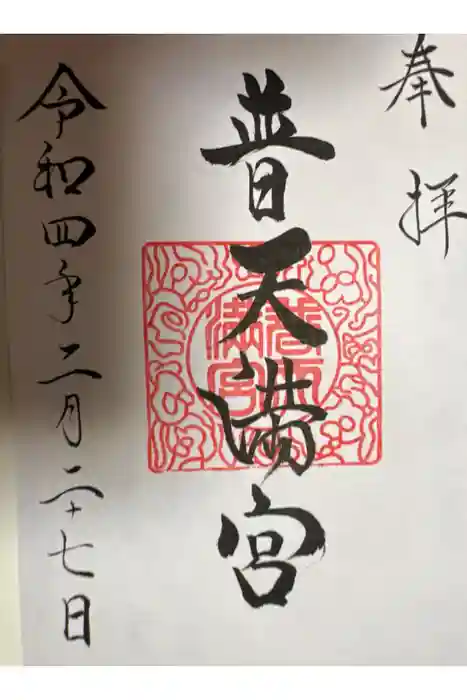 奉拝
普天満宮
令和四年二月二十七日